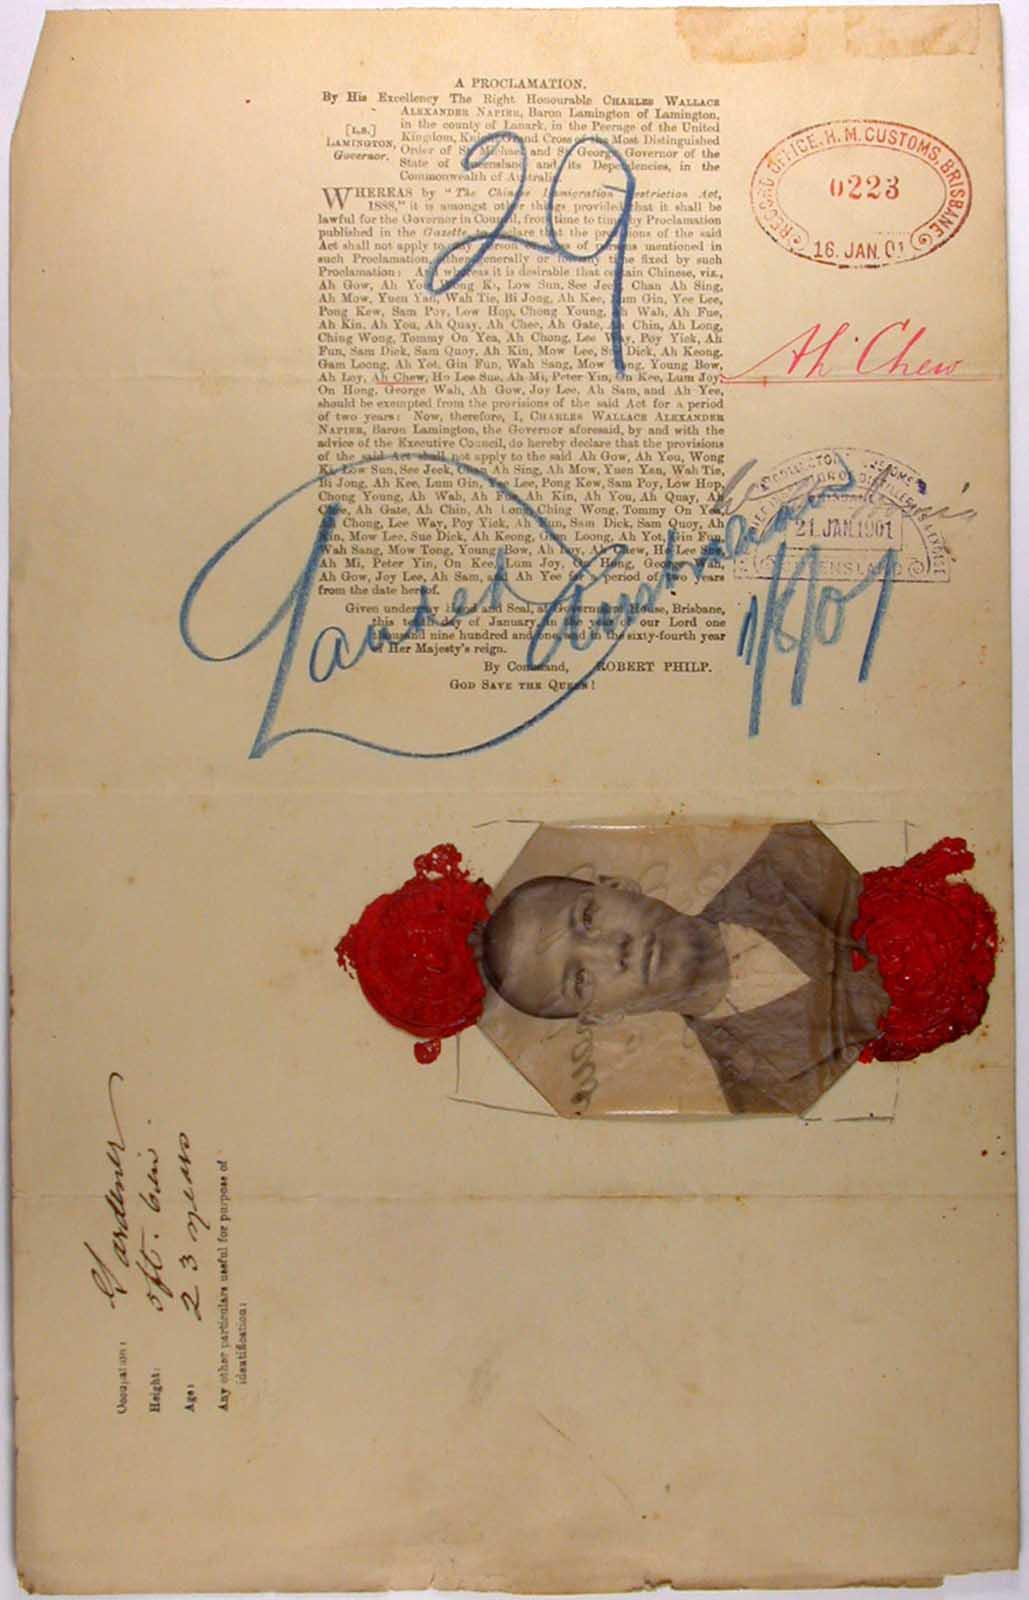 A PROCLAMATION.
By His Excellency The Right Honourable CHARLES WALLACE
ALEXANDER NAPIER, Baron Lamington of Lamington,
in the county of Lanark, in the Peerage of the United
[L.S.] Kingdom, Knight Grand Cross of the Most Distinguished
LAMINGTON, Order of St. Michael and St. George, Governor of the
Governor. State of Queensland and its Dependencies, in the
Commonwealth of Australia.
WHEREAS by "The Chinese Immigration Restriction Act,
1888," it is amongst other things provided that it shall be
lawful for the Governor in Council, from time to time by Proclamation
published in the Gazette, to declare that the provisions of the said
Act shall not apply to any person or class of persons mentioned in
such Proclamation, either generally or for any time fixed by such
Proclamation: And whereas it is desirable that certain Chinese, viz.,
Ah Gow, Ah You, Wong Ki, Low Sun, See Jeck, Chan Ah Sing,
Ah Mow, Yuen Yan, Wah Tie, Bi Jong, Ah Kee, Lum Gin, Yee Lee,
Pong Kew, Sam Poy, Low Hop, Chong Young, Ah Wah, Ah Fue,
Ah Kin, Ah You, Ah Quay, Ah Chee, Ah Gate, Ah Chin, Ah Long,
Ching Wong, Tommy On Yea, Ah Chong, Lee Way, Poy Yick, Ah
Fun, Sam Dick, Sam Quoy, Ah Kin, Mow Lee, Sue Dick, Ah Keong,
Gam Loong, Ah Yot, Gin Fun, Wah Sang, Mow Tong, Young Bow,
Ah Loy, Ah Chew, Ho Lee Sue, Ah Mi, Peter Yin, On Kee, Lum Joy,
On Hong, George Wah, Ah Gow, Joy Lee, Ah Sam, and Ah Yee,
should be exempted from the provisions of the said Act for a period
of two years: Now, therefore, I, CHARLES WALLACE ALEXANDER
NAPIER, Baron Lamington, the Governor aforesaid, by and with the
advice of the Executive Council, do hereby declare that the provisions
of the said Act shall not apply to the said Ah Gow, Ah You, Wong
Ki, Low Sun, See Jeck, Chan Ah Sing, Ah Mow, Yuen Yan, Wah Tie,
Bi Jong, Ah Kee, Lum Gin, Yee Lee, Pong Kew, Sam Poy, Low Hop,
Chong Young, Ah Wah, Ah Fue, Ah Kin, Ah You, Ah Quay, Ah
Chee, Ah Gate, Ah Chin, Ah Long, Ching Wong, Tommy On Yea,
Ah Chong, Lee Way, Poy Yick, Ah Fun, Sam Dick, Sam Quoy, Ah
Kin, Mow Lee, Sue Dick, Ah Keong, Gam Loong, Ah Yot, Gin Fun,
Wah Sang, Mow Tong, Young Bow, Ah Loy, Ah Chew, Ho Lee Sue,
Ah Mi, Peter Yin, On Kee, Lum Joy, On Hong, George Wah,
Ah Gow, Joy Lee, Ah Sam, and Ah Yee for a period of two years
from the date hereof.
Given under my Hand and Seal, at Government House, Brisbane,
this tenth day of January, in the year of our Lord one
thousand nine hundred and one, and in the sixty-fourth year
of Her Majesty's reign.
By Command, ROBERT PHILP.
GOD SAVE THE QUEEN!
29
RECORD OFFICE, H.M. CUSTOMS, BRISBANE
0223
16. JAN. 01
Ah Chew
COLLECTOR OF CUSTOMS
BRISBANE
21. JAN. 1901
QUEENSLAND
Landed
1/8/01
Occupation: Gardener
Height: 5ft. 6in.
Age: 23 years
Any other particulars useful for purpose of
identification: